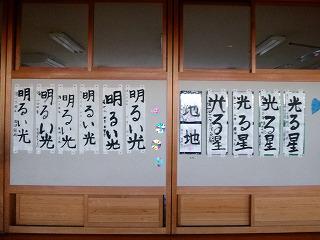 光る星
光る星
光る星
光る星
地
地
明るい光
明るい光
明るい光
明るい光
明るい光
明るい光